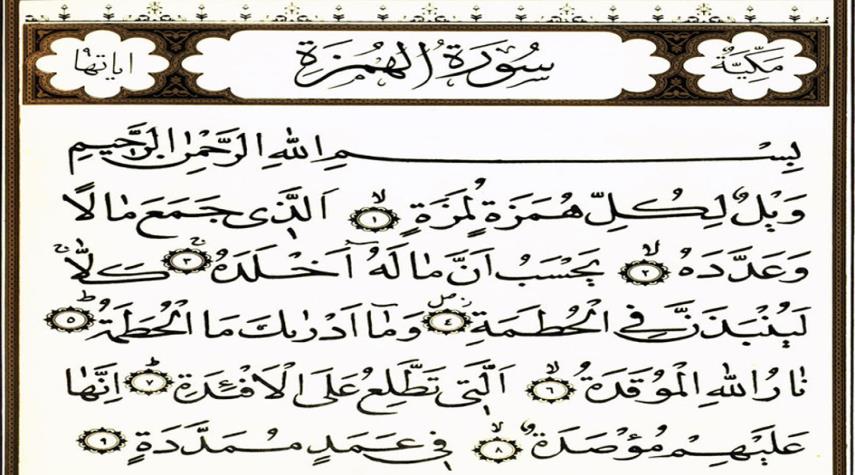 مَكِّيَّةٌ سُورَةُ الْهُمَزَةِ اٰيَاتُهَا ٩
بِسْمِ اللّٰهِ الرَّحْمٰنِ الرَّحِيمِ
وَيْلٌ لِكُلِّ هُمَزَةٍ لُمَزَةٍ ١ اَلَّذِى جَمَعَ مَالًا
وَعَدَّدَهُ ٢ يَحْسَبُ اَنَّ مَالَهُٓ اَخْلَدَهُ ٣ كَلَّا
لَيُنْبَذَنَّ فِي الْحُطَمَةِ ٤ وَمَٓا اَدْرٰيكَ مَا الْحُطَمَةُ ٥
نَارُ اللّٰهِ الْمُوقَدَةُ ٦ اَلَّتِى تَطَّلِعُ عَلَى الْاَفْئِدَةِ ٧ اِنَّهَا
عَلَيْهِمْ مُؤْصَدَةٌ ٨ فِى عَمَدٍ مُمَدَّدَةٍ ٩